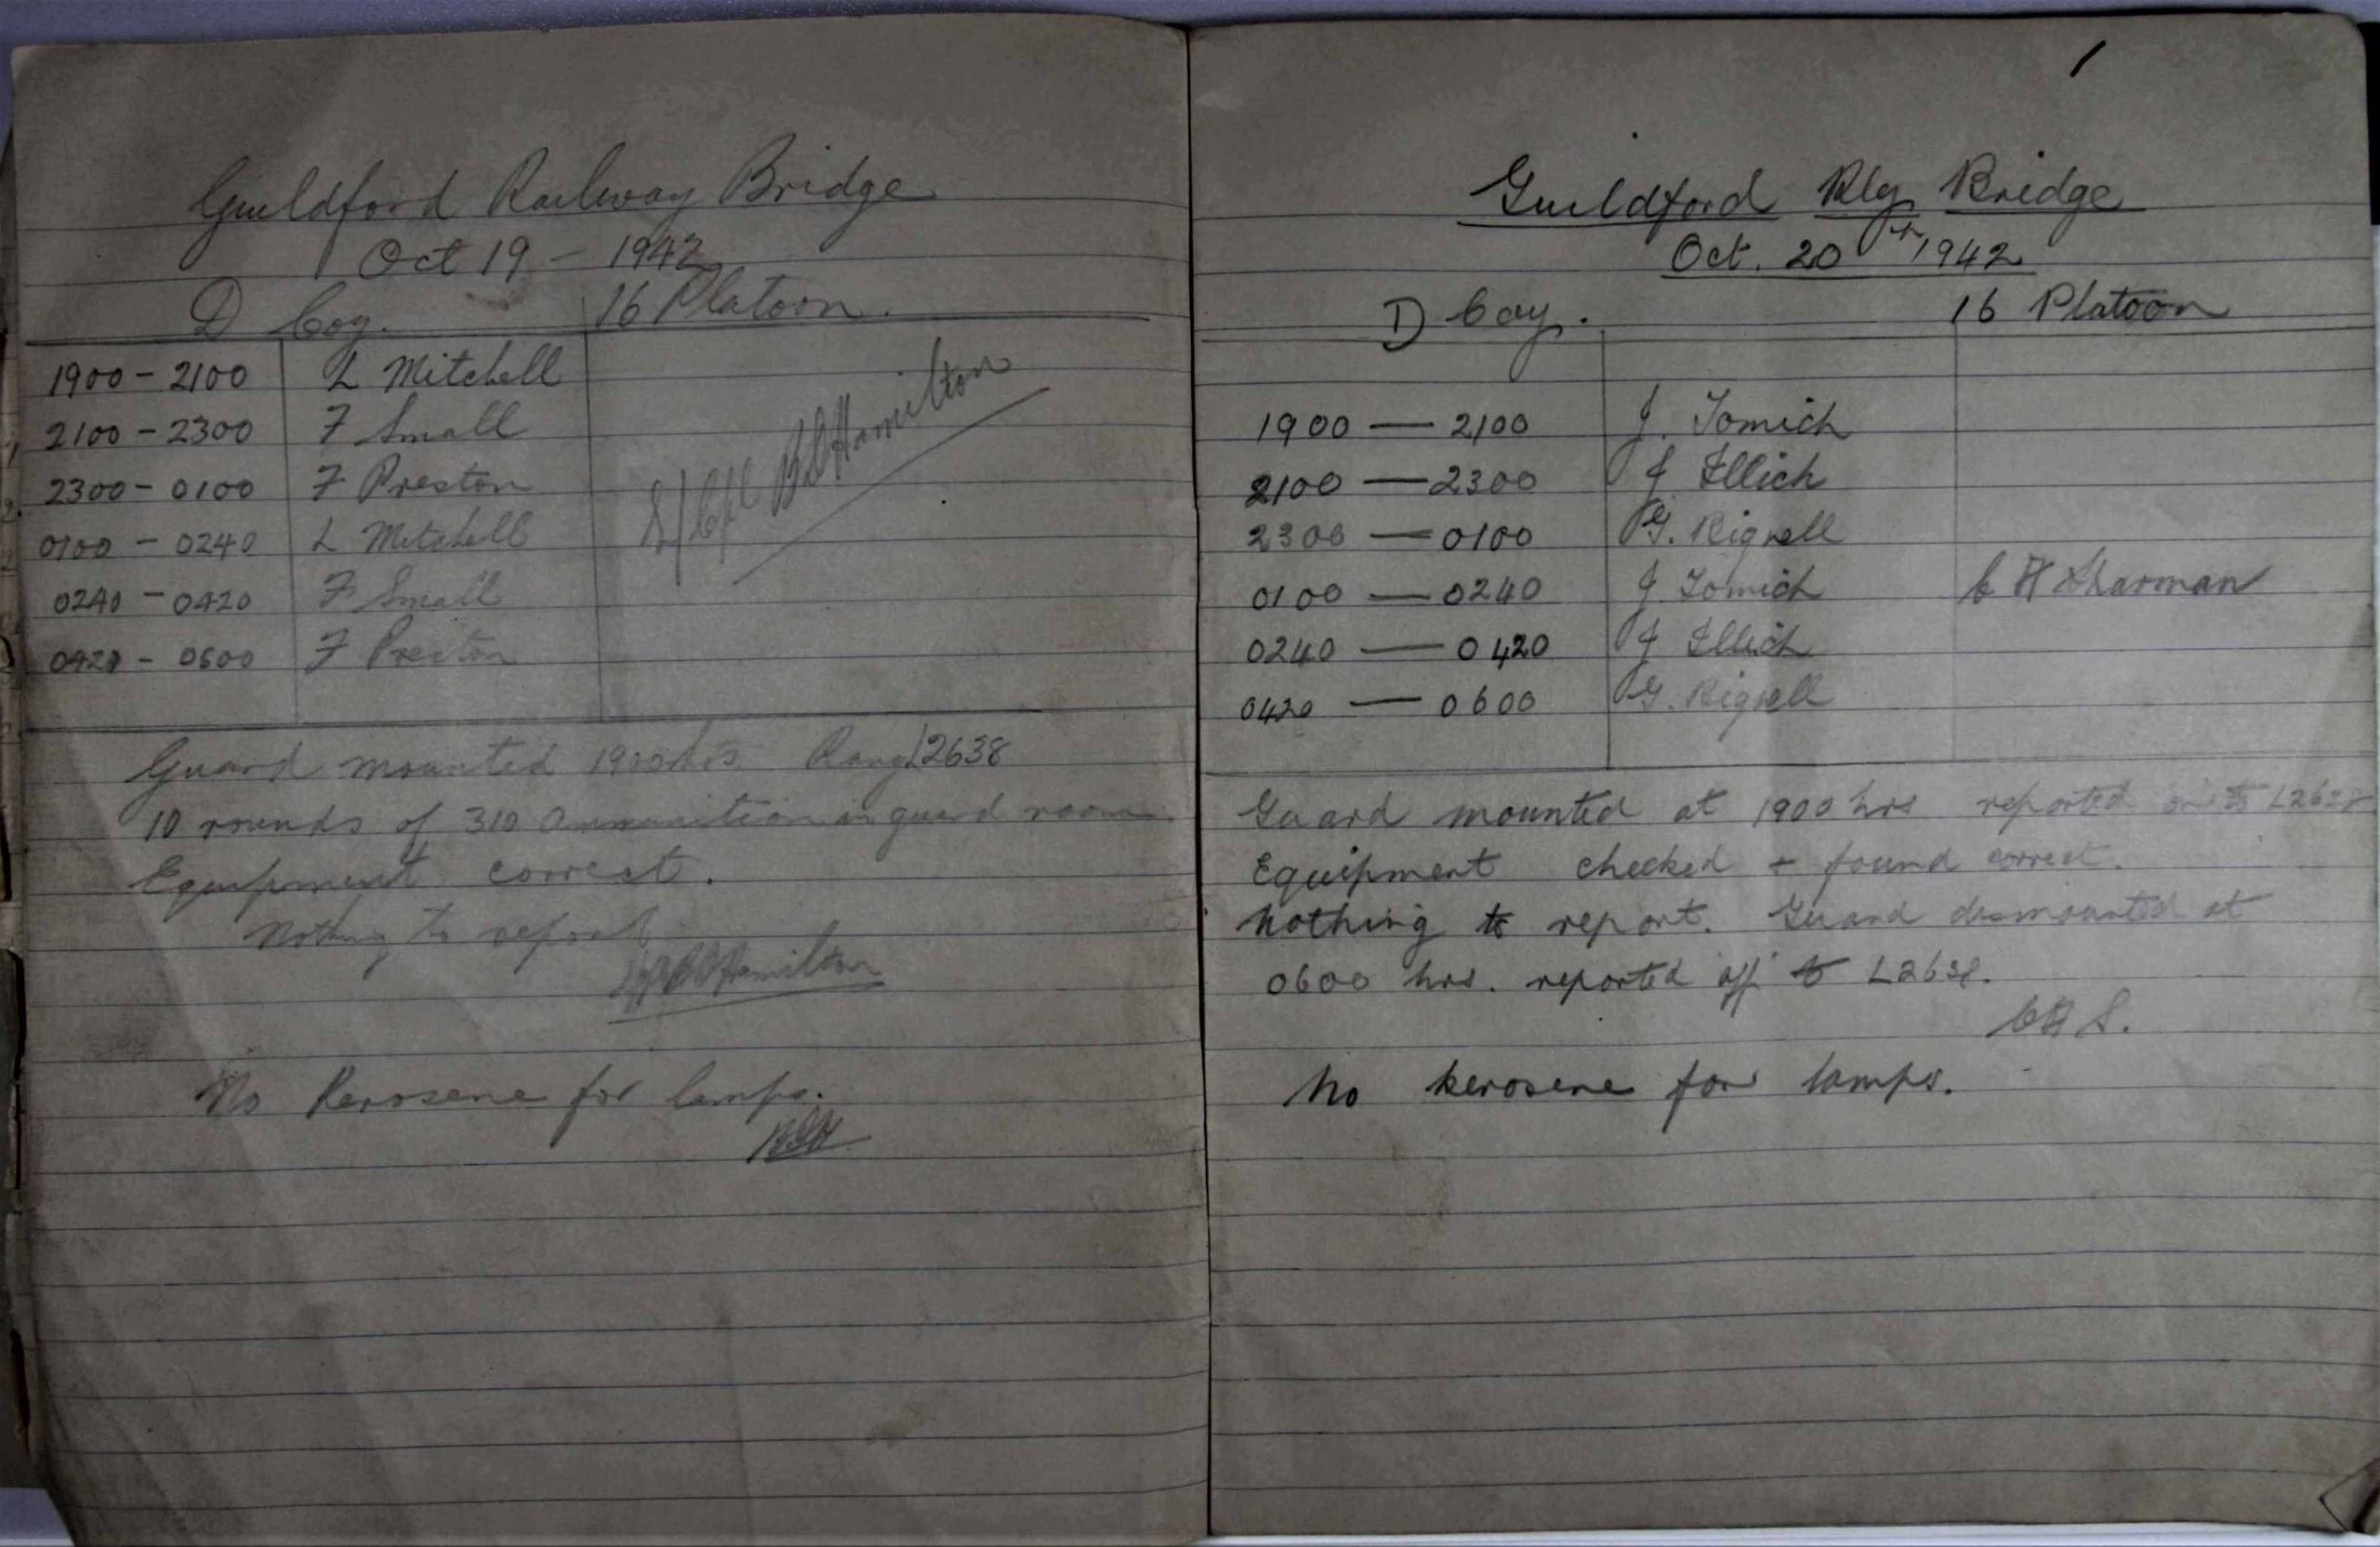 Guildford Railway Bridge
Oct 19 - 1942
D Coy. 16 Platoon.
1900 - 2100 L Mitchell
2100 - 2300 F Small
2300 - 0100 F Preston
0100 - 0240 L Mitchell
0240 - 0420 F Small
0420 - 0600 F Preston
L/Cpl B L Hamilton
Guard mounted 1900 hrs Rang L2638
10 rounds of 310 Ammunition in guard room
Equipment correct.
Nothing to report
Hamilton
No Kerosene for lamps.
BLH
1
Guildford Rly Bridge
Oct. 20th 1942
D Coy. 16 Platoon
1900 — 2100 J. Tomich
2100 — 2300 J Illich
2300 — 0100 G. Rignell
0100 — 0240 J. Tomich C H Sharman
0240 — 0420 J Illich
0420 — 0600 G. Rignell
Guard mounted at 1900 hrs reported on to L2638
Equipment checked + found correct.
Nothing to report. Guard dismounted at
0600 hrs. reported off to L2638.
C H S.
No kerosene for lamps.